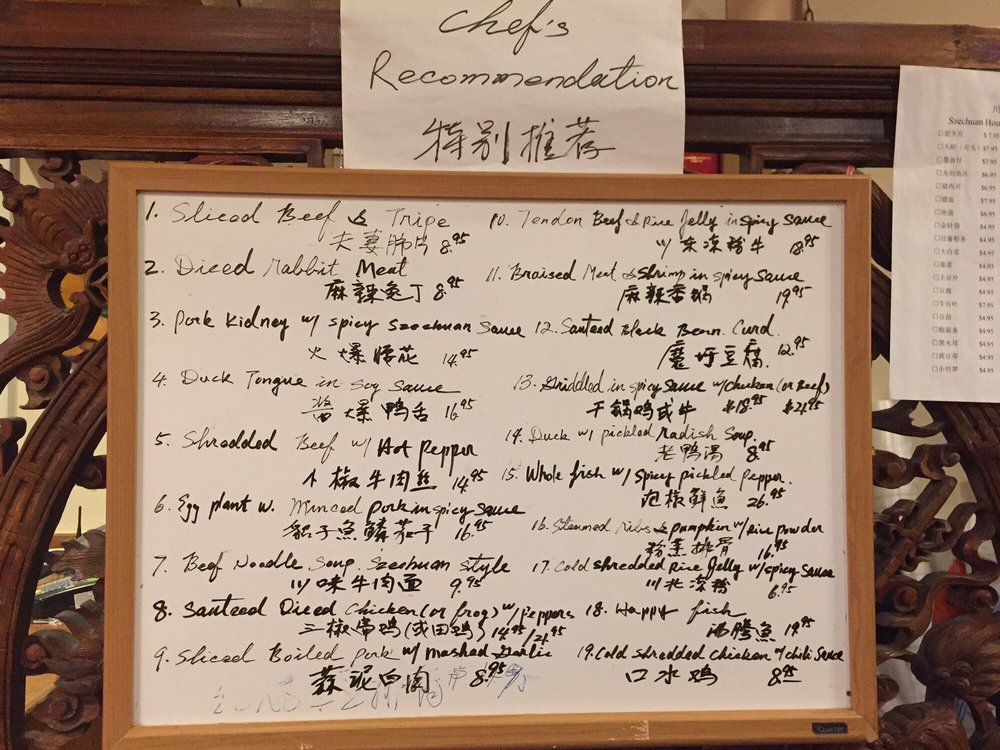 Chef's
Recommendation
特别推荐
1. Sliced Beef & Tripe
夫妻肺片 8.95
2. Diced Rabbit Meat
麻辣兔丁 8.95
3. Pork Kidney w/ spicy Szechuan Sauce
火爆腰花 14.95
4. Duck Tongue in Soy Sauce
酱爆鸭舌 16.95
5. Shredded Beef w/ Hot Pepper
小椒牛肉丝 14.95
6. Egg plant w. Minced Pork in spicy Sauce
魚鳞茄子 16.95
7. Beef Noodle Soup. Szechuan Style
川味牛肉面 9.95
8. Sauteed Diced Chicken (or frog) w/ Peppers
三椒雷鸡(或田鸡) 14.95/21.95
9. Sliced Boiled Pork w/ mashed Garlic
蒜泥白肉 8.95
10. Tendon Beef & Rice Jelly in spicy Sauce
川东凉粉牛 8.95
11. Braised Meat & Shrimp in spicy Sauce
麻辣香锅 19.95
12. Sauteed Black Bean Curd.
磨圩豆腐. 12.95
13. Griddled in spicy Sauce w/ chicken (or Beef)
干锅鸡或牛 $18.95 $21.95
14. Duck w/ pickled Radish Soup.
老鸭湯 8.95
15. Whole fish w/ Spicy pickled Pepper.
泡椒鲜魚 26.95
16. Steamed Ribs & pumpkin w/ Rice Powder
粉蒸排骨 16.95
17. Cold shredded Rice Jelly w/ spicy Sauce
川北凉粉 6.95
18. Happy fish
沸腾魚 19.95
19. Cold shredded Chicken w/ chili Sauce
口水鸡 8.95
Szechuan Hou
肥牛片 $7.95
$7.95
墨鱼仔 $7.95
龙利鱼片 $6.95
鸡肉片 $6.95
$7.95
鱼蛋 $6.95
金针菇 $4.95
红薯粉条 $4.95
大白菜 $4.95
菠菜 $4.95
土豆片 $4.95
豆腐 $4.95
牛百叶 $7.95
豆苗 $4.95
$4.95
黑木耳 $4.95
黄豆芽 $4.95
小竹笋 $4.95